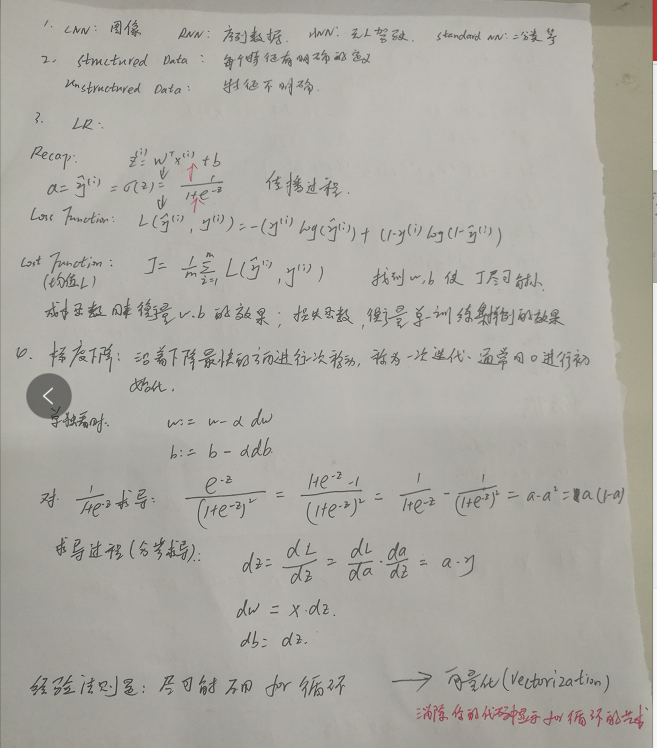 1. CNN: 图像 RNN: 序列数据. HNN: 无人驾驶. standard NN: 二分类等
2. Structured Data: 每个特征有明确的定义
Unstructured Data: 特征不明确.
3. LR:
Recap: z⁽ⁱ⁾= wᵀx⁽ⁱ⁾+b
a= ŷ⁽ⁱ⁾ = σ(z) = 1/(1+e^-z) 传播过程.
Loss Function: L(ŷ⁽ⁱ⁾, y⁽ⁱ⁾)=-(y⁽ⁱ⁾ log(ŷ⁽ⁱ⁾)+(1-y⁽ⁱ⁾ log(1-ŷ⁽ⁱ⁾)
Cost Function: J= 1/m Σ L(ŷ⁽ⁱ⁾, y⁽ⁱ⁾) 找到w.b 使 J尽可能小.
(均值L)
成本函数用来衡量w.b的效果; 损失函数,衡量单一训练样例的效果
梯度下降: 沿着下降最快的方向进行一次移动, 称为一次迭代. 通常用0进行初
始化.
单独看时. w:= w-α dw
b:= b-αdb
对 1/(1+e^-z) 求导: e^-z/(1+e^-z)² = (1+e^-z-1)/(1+e^-z)² = 1/(1+e^-z) - 1/(1+e^-z)² = a-a² = a(1-a)
求导过程(分步求导): dz= dL/dz = dL/da · da/dz = a-y
dw = x·dz.
db= dz.
经验法则是: 尽可能不用 for 循环 → 向量化(Vectorization)
消除你的代码中显示for循环的艺术